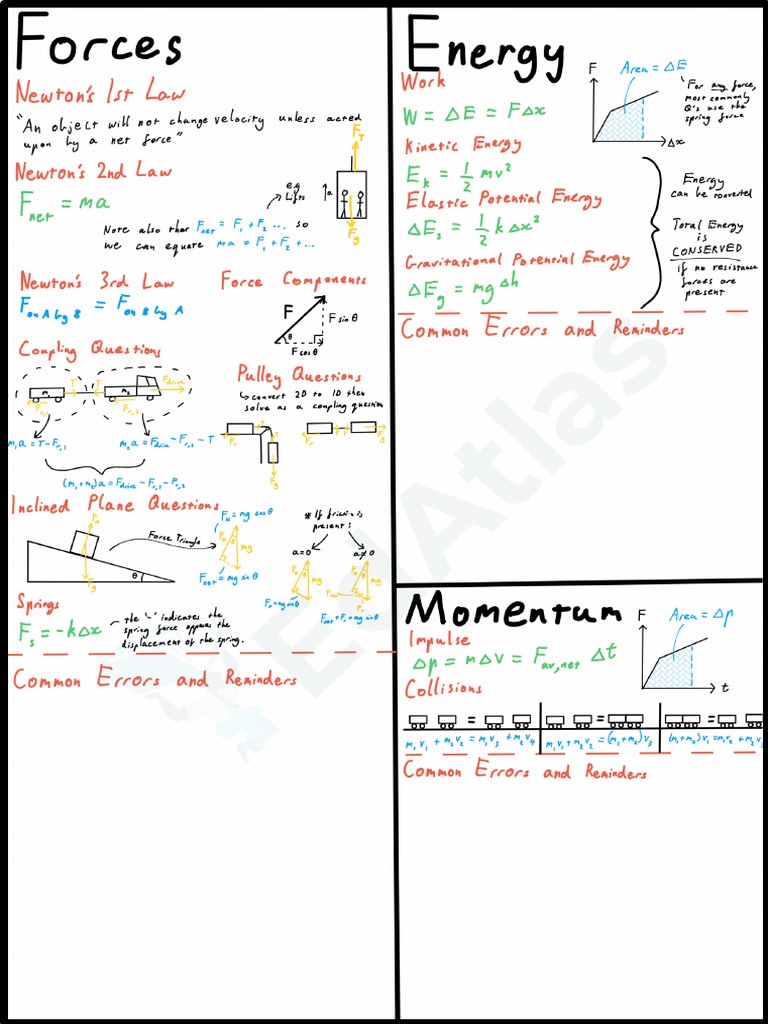 Forces
Newton's 1st Law
"An object will not change velocity unless acted
upon by a net force"
F_T
Newton's 2nd Law
F_net = ma
e.g
Lifts
a
F_g
Note also that F_net = F₁ + F₂ ... so
we can equate ma = F₁ + F₂ + ...
Newton's 3rd Law
F_on A by B = F_on B by A
Force Components
F
F sin θ
θ
F cos θ
Coupling Questions
m₁ T T m₂ F_drive
F_r,1 F_r,2
m₁a = T - F_r,1
m₂a = F_drive - F_r,2 - T
(m₁+m₂)a = F_drive - F_r,1 - F_r,2
Pulley Questions
↳ convert 2D to 1D then
solve as a coupling question
F_r T T F_g
F_r T T F_g
Inclined Plane Questions
F_N
F_g
θ
Force Triangle
F_N = mg cos θ
F_N θ mg
F_net = mg sin θ
* If friction is
present:
a=0
a≠0
F_N θ mg
F_r = mg sin θ
F_N θ mg
F_net F_r
F_net + F_r = mg sin θ
Springs
F_s = -kΔx
the '-' indicates the
spring force opposes the
displacement of the spring.
Common Errors and Reminders
Energy
Work
W = ΔE = FΔx
F
Area = ΔE
Δx
'For any force,
most commonly
Q's use the
spring force
Kinetic Energy
E_k = ½ mv²
Elastic Potential Energy
ΔE_s = ½ kΔx²
Gravitational Potential Energy
ΔE_g = mgΔh
Energy
can be converted
Total Energy
is
CONSERVED
if no resistance
forces are
present
Common Errors and Reminders
Momentum
Impulse
Δp = mΔv = F_av,net Δt
F
Area = Δp
t
Collisions
= = =
m₁v₁ + m₂v₂ = m₁v₃ + m₂v₄
m₁v₁ + m₂v₂ = (m₁+m₂)v₃
(m₁+m₂)v₁ = m₁v₂ + m₂v₃
Common Errors and Reminders
EdAtlas